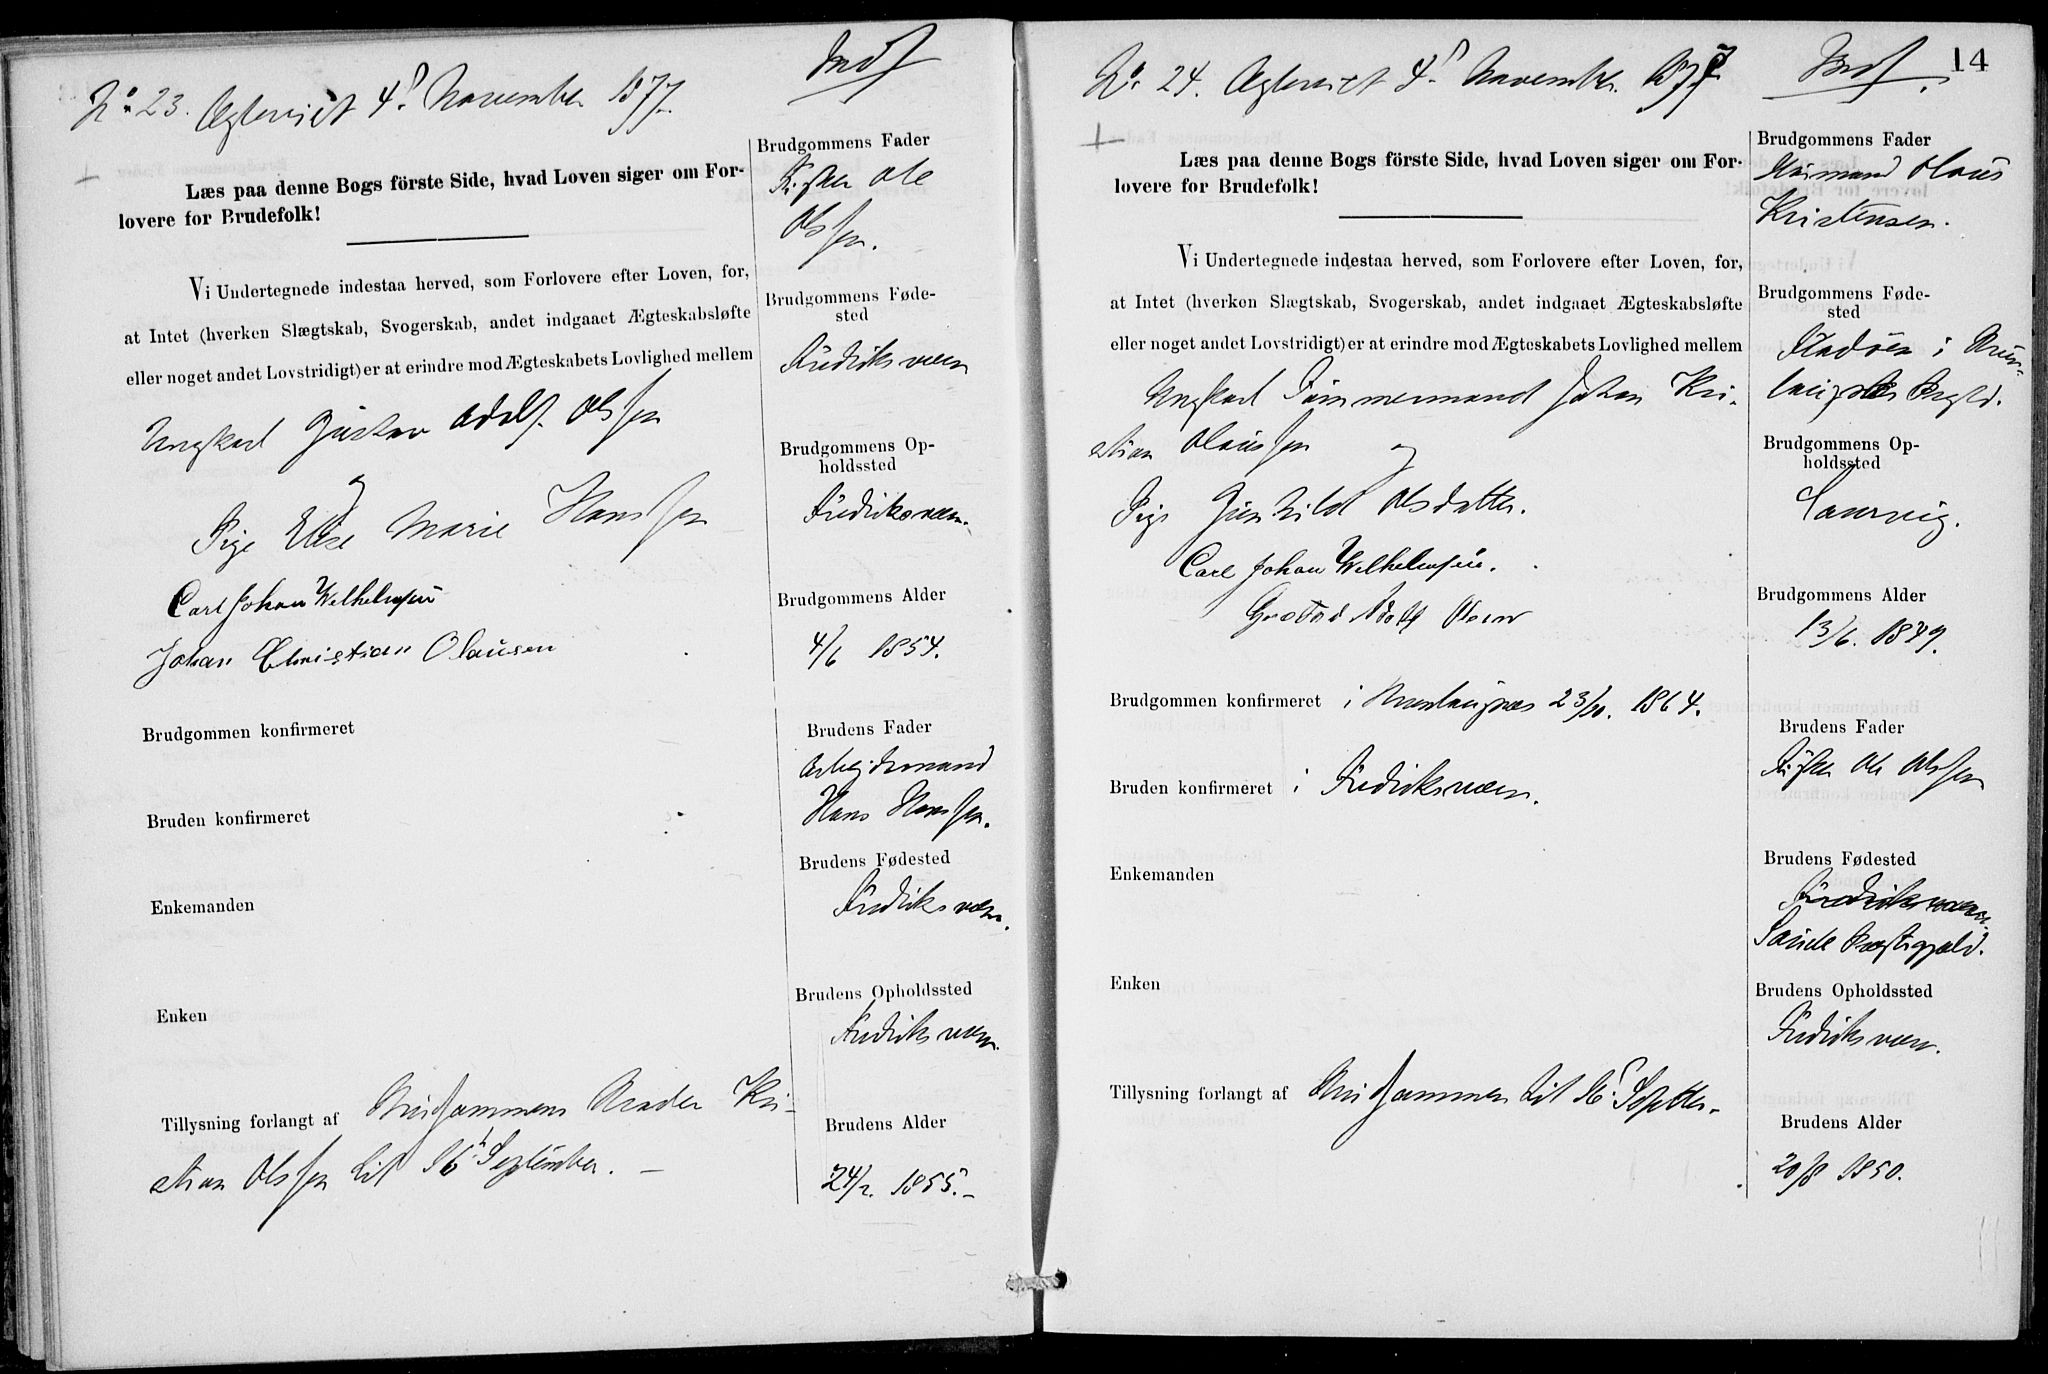 No 23. Ægteviet 4d November 1877. Indf
Læs paa denne Bogs förste Side, hvad Loven siger om For-
lovere for Brudefolk!
Vi Undertegnede indestaa herved, som Forlovere efter Loven, for,
at Intet (hverken Slægtskab, Svogerskab, andet indgaaet Ægteskabsløfte
eller noget andet Lovstridigt) er at erindre mod Ægteskabets Lovlighed mellem
Ungkarl Gustav Adolf Olssen
og
Pige Elise Marie Hanssen
Carl Johan Wilhelmsen
Johan Christian Olausen
Brudgommen konfirmeret
Bruden konfirmeret
Enkemanden
Enken
Tillysning forlangt af Brudgommens Broder Kri-
stian Olssen til 16 September.
Brudgommens Fader
Fisker Ole
Olssen.
Brudgommens Føde-
sted
Fredriksværn
Brudgommens Op-
holdssted
Fredriksværn.
Brudgommens Alder
4/6 1854.
Brudens Fader
Arbejdsmand
Hans Hanssen.
Brudens Fødested
Fredriksværn.
Brudens Opholdssted
Fredriksværn.
Brudens Alder
24/2. 1855.
14
No 24. Ægteviet 4d November 1877 Indf.
Læs paa denne Bogs förste Side, hvad Loven siger om For-
lovere for Brudefolk!
Vi Undertegnede indestaa herved, som Forlovere efter Loven, for,
at Intet (hverken Slægtskab, Svogerskab, andet indgaaet Ægteskabsløfte
eller noget andet Lovstridigt) er at erindre mod Ægteskabets Lovlighed mellem
Ungkarl Tømmermand Johan Kri-
stian Olaussen og
Pige Gunhild Olsdatter.
Carl Johan Wilhelmsen.
Gustav Adolf Olsen
Brudgommen konfirmeret i Brunlaugnæs 23/10. 1864.
Bruden konfirmeret i Fredriksværn.
Enkemanden
Enken
Tillysning forlangt af Brudgommen til 16 Septbr.
Brudgommens Fader
Husmand Olaus
Kristensen.
Brudgommens Føde-
sted
i Brun-
laugnæs Prgld.
Brudgommens Op-
holdssted
Laurvig.
Brudgommens Alder
13/6. 1849.
Brudens Fader
Fisker Ole Olssen
Brudens Fødested
Fredriksværn.
Sande Præstegjæld.
Brudens Opholdssted
Fredriksværn.
Brudens Alder
20/8 1850.